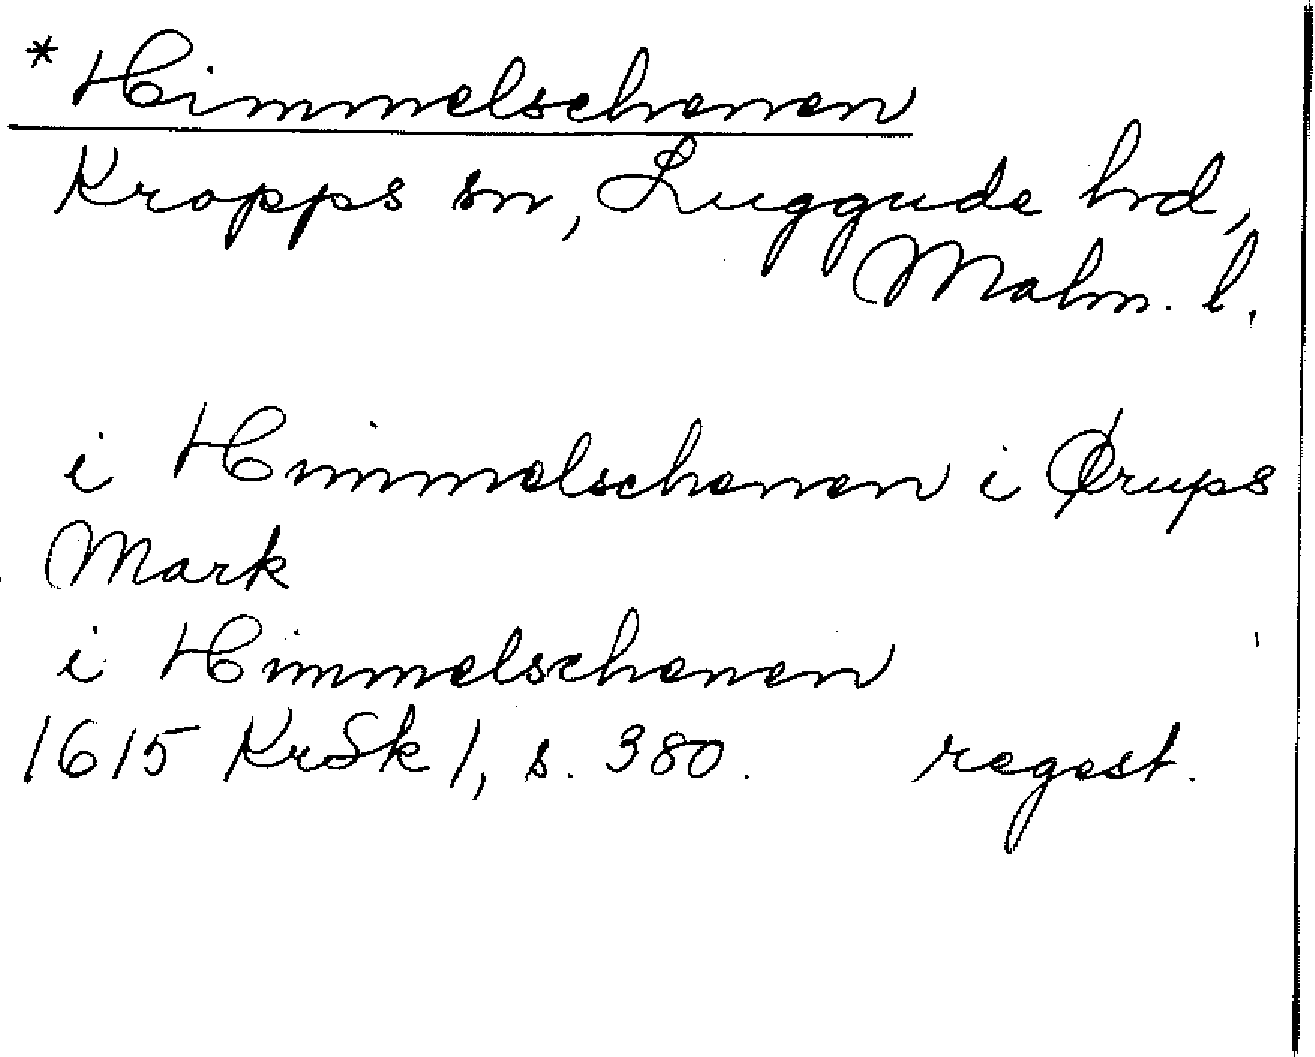 * Himmelschenen
Kropps sn, Luggude hrd,
Malm. l.
i Himmelschenen i Ørups
Mark
i Himmelschenen
1615 KrSk 1, s. 380. regest.